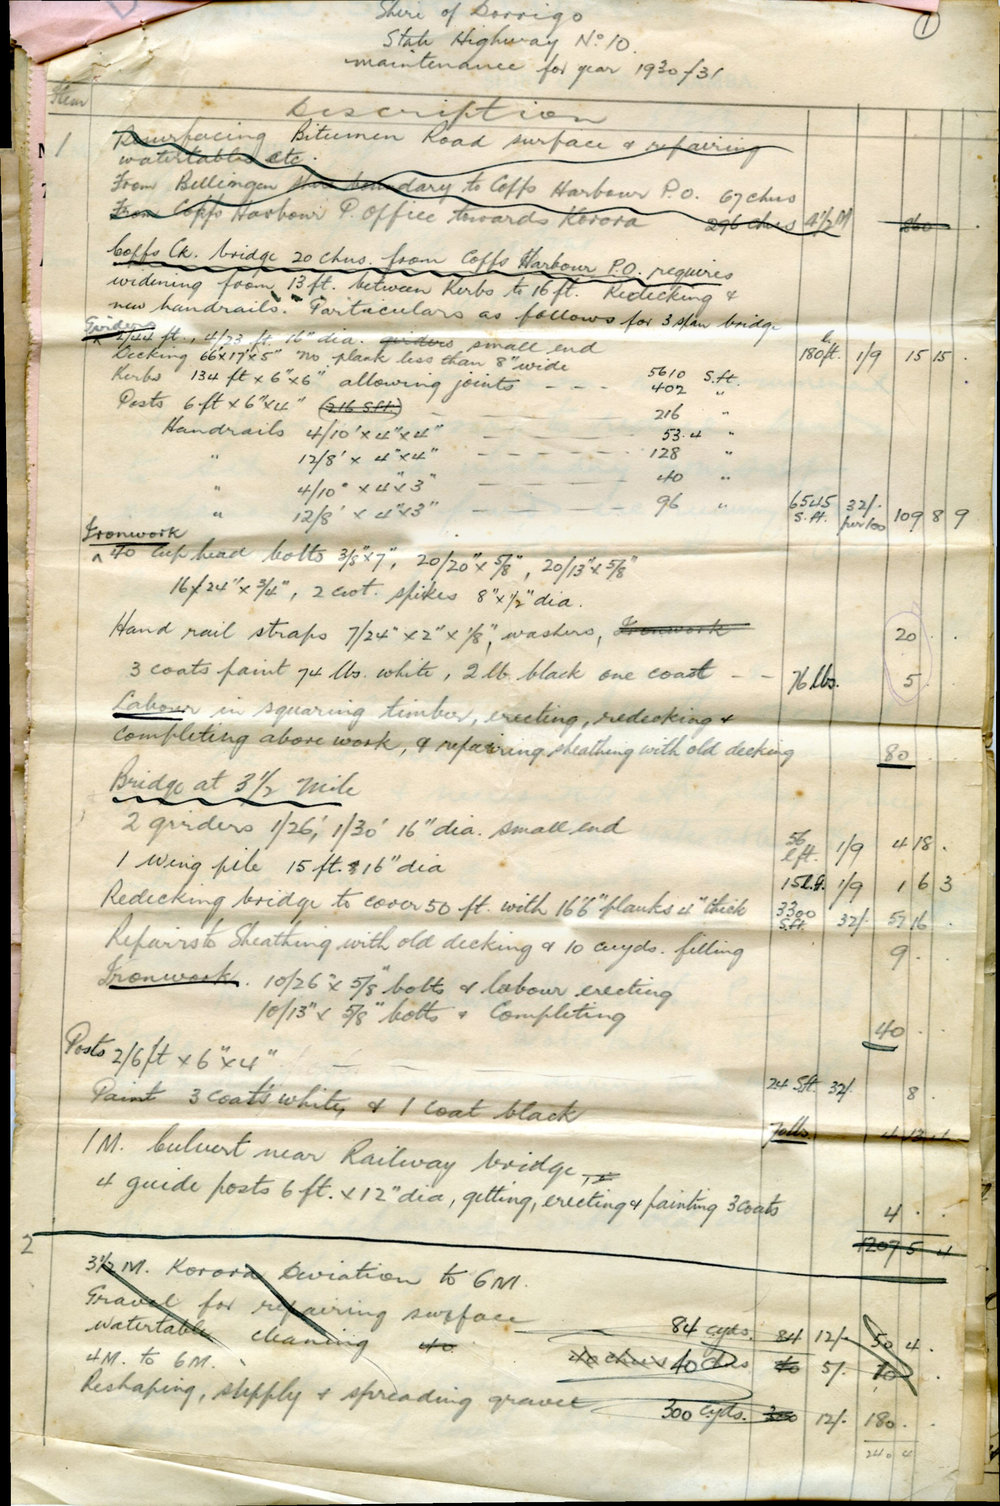 ①
Shire of Dorrigo
State Highway No 10.
maintenance for year 1930/31
Item
Description
1 Resurfacing Bitumen Road surface & repairing
watertables etc.
From Bellingen Shire boundary to Coffs Harbour P.O. 67 chns
From Coffs Harbour P. Office towards Korora 296 chns 4½ M 860
Coffs Ck. bridge 20 chns. from Coffs Harbour P.O. requires
widening from 13 ft. between Kerbs to 16 ft. Redecking &
new handrails. Particulars as follows for 3 span bridge
Girders
2/44 ft., 4/23 ft. 16" dia. girders small end 180 ft. 1/9 15 15 .
Decking 66'x17'x5" no plank less than 8" wide 5610 S.ft.
Kerbs 134 ft x 6"x6" allowing joints - - - 402 "
Posts 6 ft x 6"x4" (216 S.ft.) 216 "
Handrails 4/10' x 4"x4" 53.4 "
" 12/8' x 4"x4" 128 "
" 4/10' x 4"x3" 40 "
" 12/8' x 4"x3" 96 " 6545 S.ft. 32/. per 100 109 8 9
Ironwork
^ 40 cup head bolts 3/8"x7", 20/20"x 5/8", 20/13"x 5/8"
16/24"x 3/4", 2 cwt. spikes 8"x½" dia.
Hand rail straps 7/24"x2"x 1/8", washers, Ironwork 20 . .
3 coats paint 74 lbs. white, 2 lb black one coat - - 76 lbs. 5 .
Labour in squaring timber, erecting, redecking &
completing above work, & repairing sheathing with old decking 80
Bridge at 3½ Mile
2 girders 1/26', 1/30' 16" dia. small end 56 l ft. 1/9 4 18 .
1 wing pile 15 ft. 16" dia 15 l.f. 1/9 1 6 3
Redecking bridge to cover 50 ft. with 16'6" planks 4" thick 3300 S.ft. 32/. 52 16
Repairs to Sheathing with old decking & 10 cu yds. filling 9 .
Ironwork. 10/26"x 5/8" bolts & labour erecting
10/13"x 5/8" bolts & Completing 40 . .
Posts 2/6 ft x 6"x4" 24 S.ft. 32/. 8 .
Paint 3 coats white, & 1 coat black 7 lbs
1 M. Culvert near Railway bridge
4 guide posts 6 ft. x 12" dia, getting, erecting & painting 3 coats 4 . .
1207 5 4
2
3½ M. Korora Deviation to 6 M.
Gravel for repairing surface 84 cyds. 84 12/- 50 4 .
watertable cleaning 40 40 chns 40 chns 40 5/. 10 .
4 M. to 6 M.
Reshaping, supply & spreading gravel 300 cyds. 300 12/. 180 . .
240 4